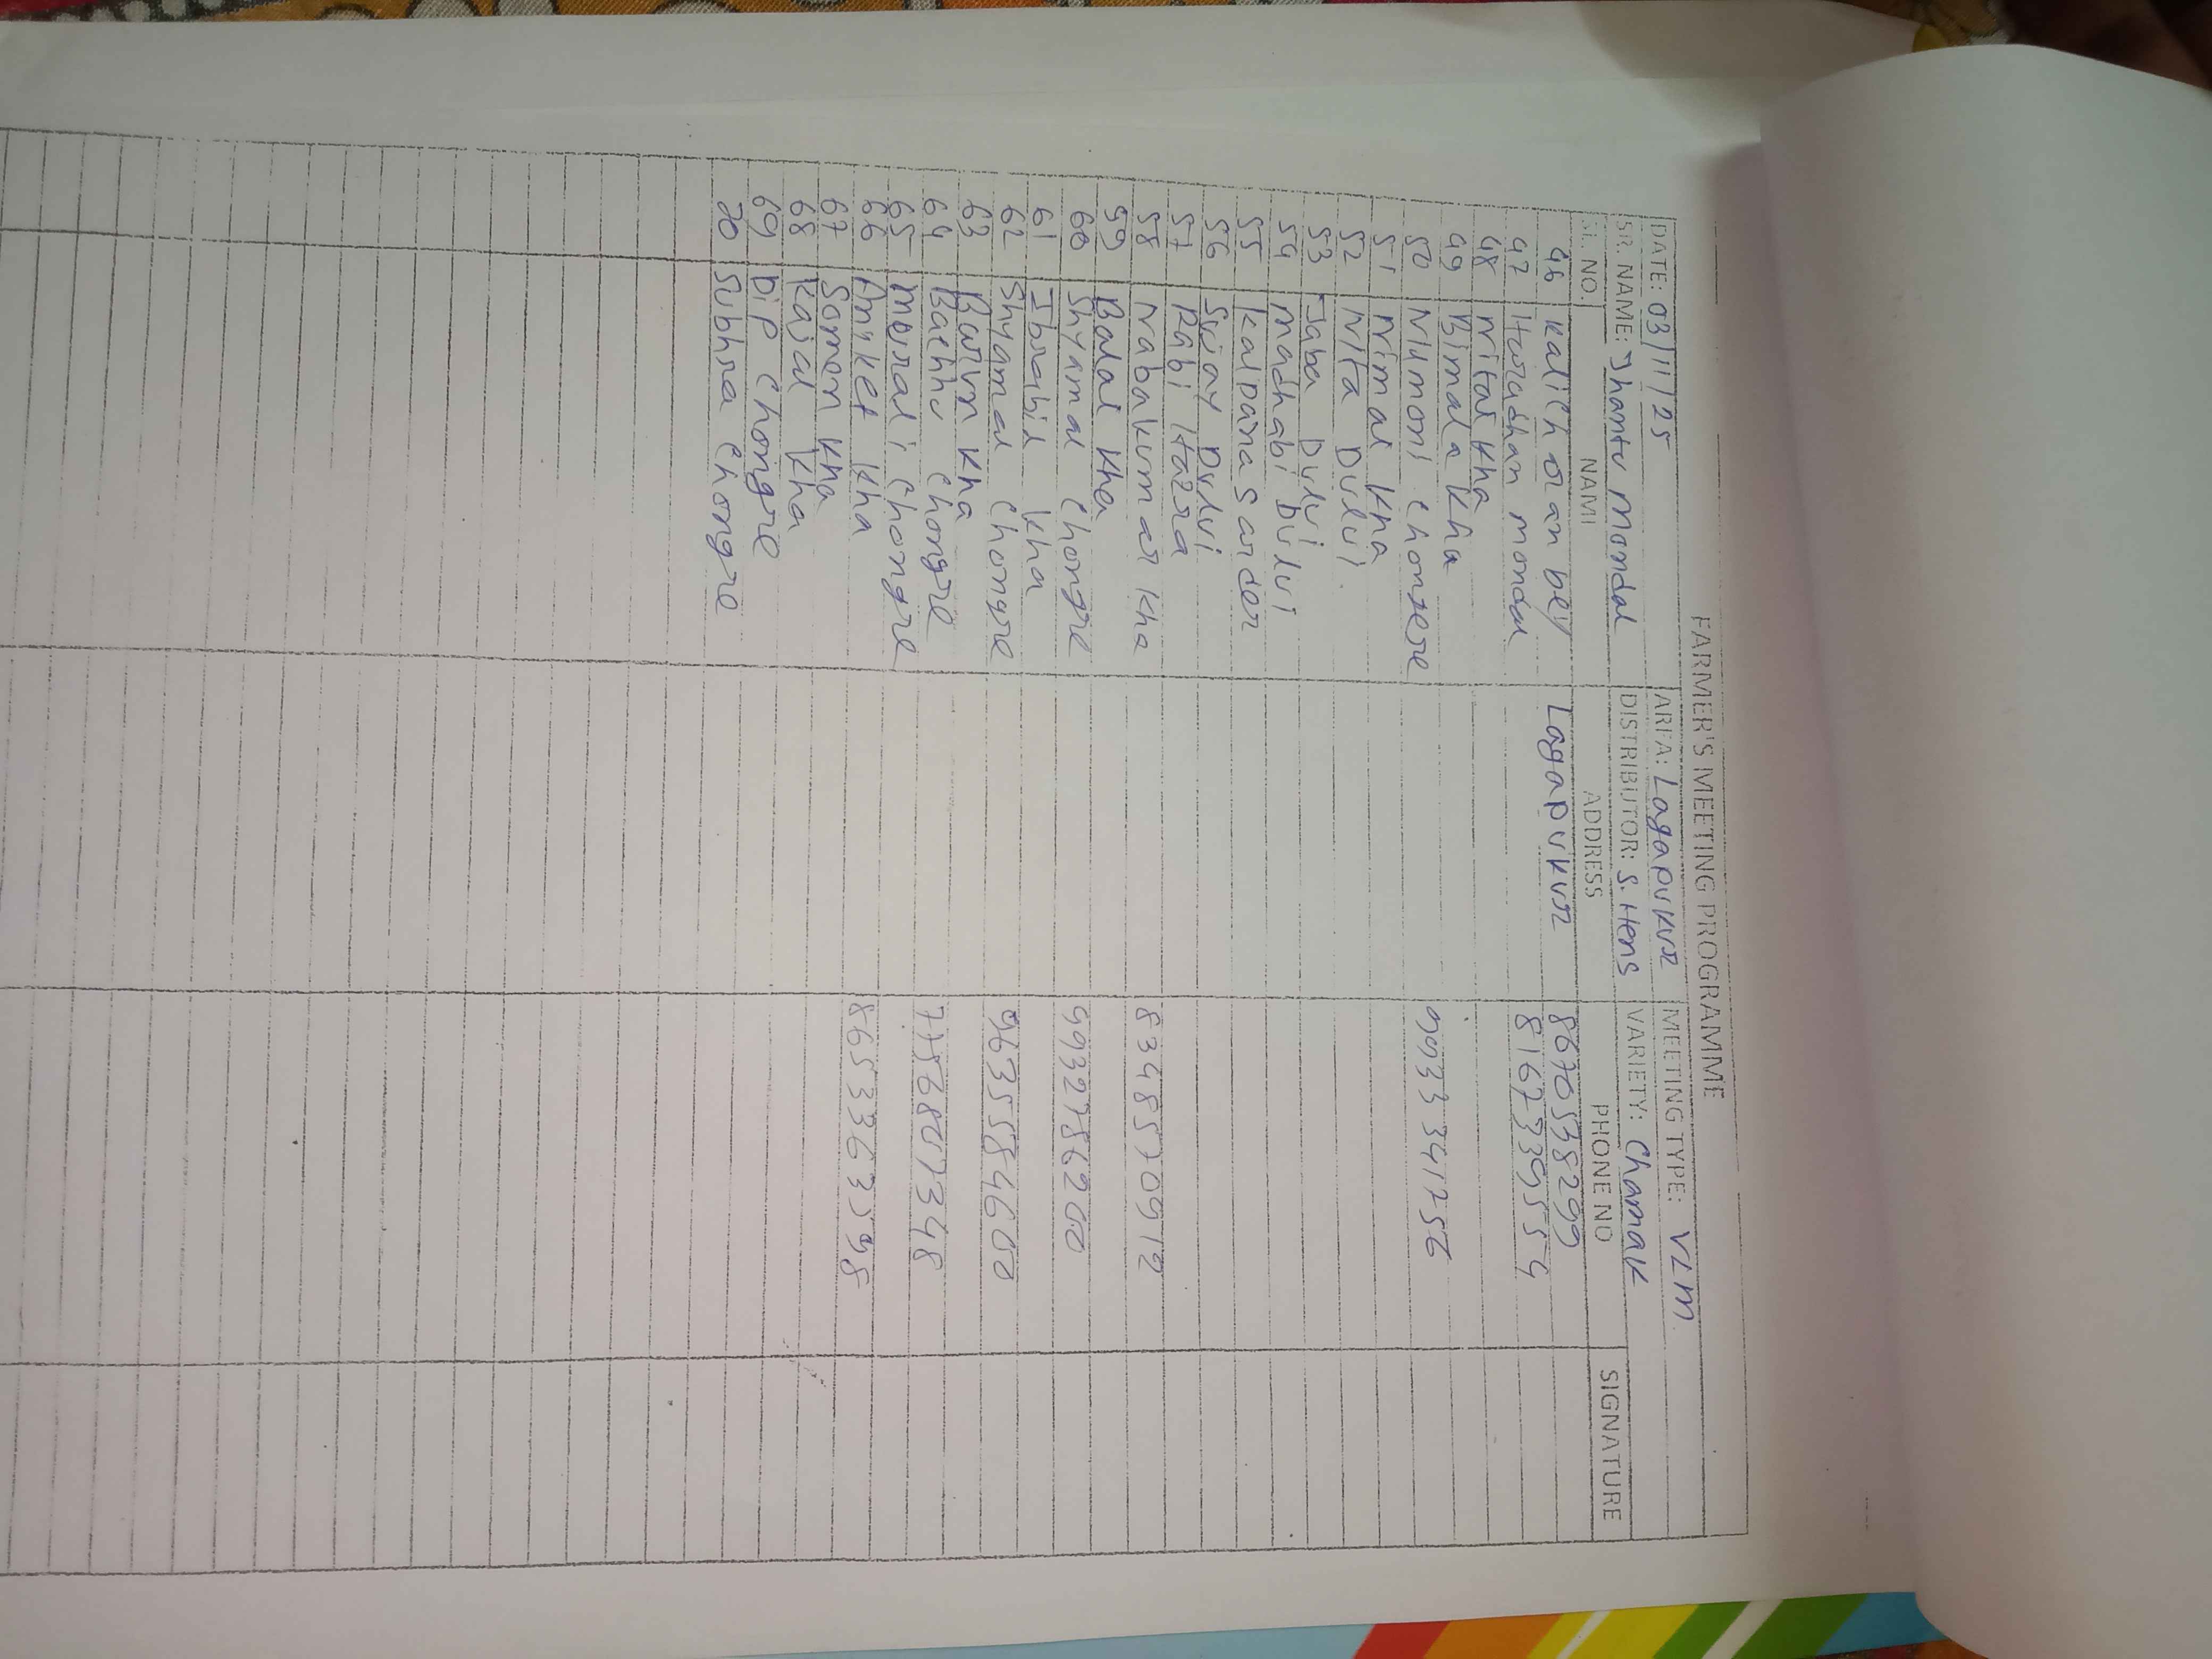 FARMER'S MEETING PROGRAMME
DATE: 03/11/25 AREA: Lagapukur MEETING TYPE: VLM
SR. NAME: Jhantu Mondal DISTRIBUTOR: S. Hens VARIETY: Chamak
SL. NO. NAME ADDRESS PHONE NO SIGNATURE
46 Kalicharan Dey Lagapukur 8670538299
47 Haradhan Mondal 8167339554
48 Nitai Kha
49 Bimala Kha
50 Nilmoni Chongre 9933341756
51 Nimai Kha
52 Nita Dului
53 Jaba Dului
54 Madhabi Dului
55 Kalpana Sardar
56 Sujay Dului
57 Rabi Hazra
58 Nabakumar Kha 8348570912
59 Balai Kha
60 Shyamal Chongre 9932786200
61 Kha
62 Shyamal Chongre 9635584600
63 Kha
64 Bachhu Chongre 7756807348
65 Chongre
66 Aniket Kha 8653363598
67 Somon Kha
68 Kajal Kha
69 Dip Chongre
70 Subhra Chongre